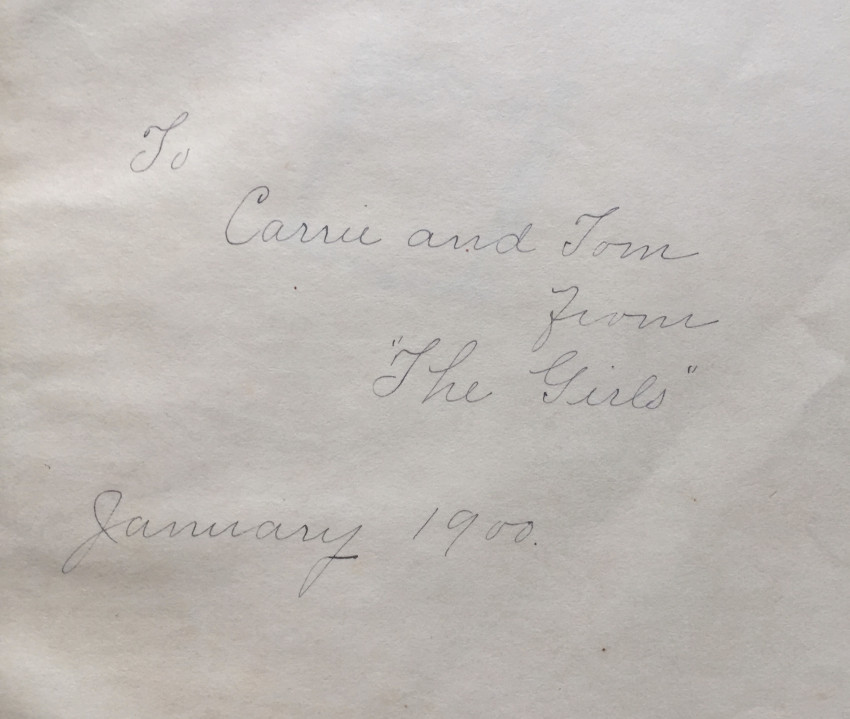 To
Carrie and Tom
from
"The Girls"
January 1900.